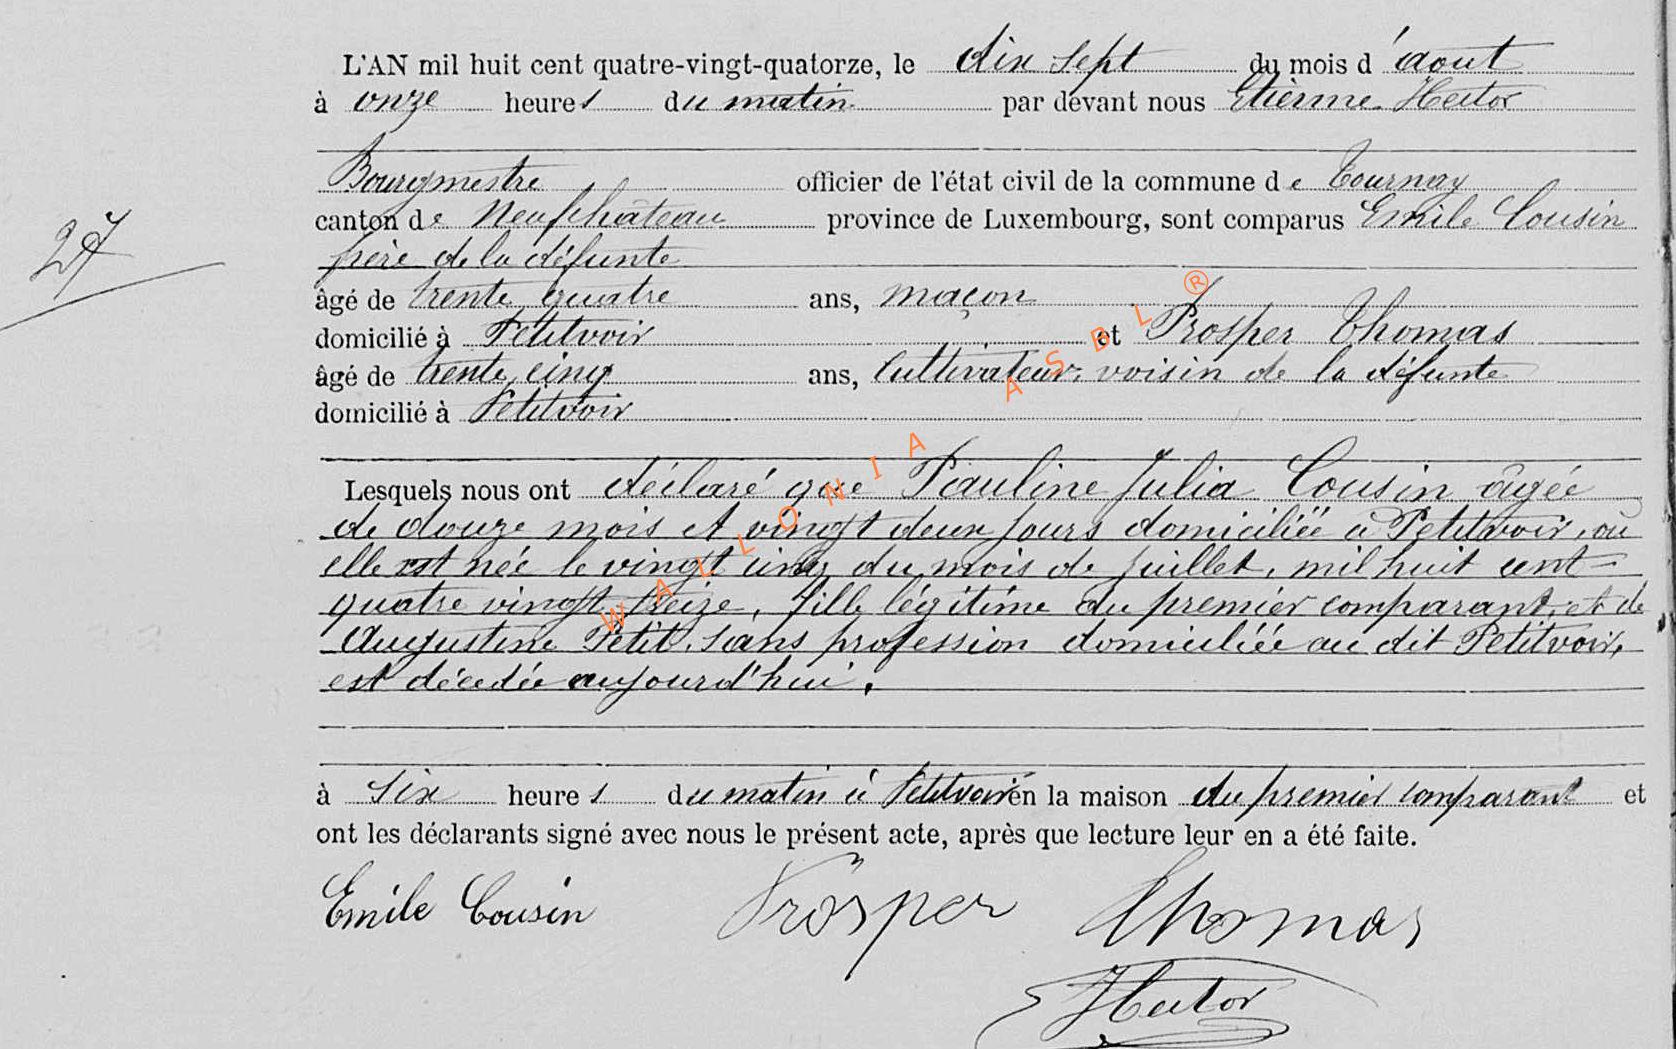 L'AN mil huit cent quatre-vingt-quatorze, le dix sept du mois d'août
à onze heures du matin par devant nous Etienne Hector
Bourgmestre officier de l'état civil de la commune de Tournay
canton de Neufchâteau province de Luxembourg, sont comparus Emile Cousin
27
père de la défunte
âgé de trente quatre ans, maçon
domicilié à Petitvoir et Prosper Thomas
âgé de trente cinq ans, Cultivateur, voisin de la défunte
domicilié à Petitvoir
Lesquels nous ont déclaré que Pauline Julia Cousin âgée
de douze mois et vingt deux jours domiciliée à Petitvoir, où
elle est née le vingt cinq du mois de juillet, mil huit cent
quatre vingt treize, fille légitime du premier comparant, et de
Augustine Petit, sans profession domiciliée au dit Petitvoir,
est décédée aujourd'hui,
à six heures du matin à Petitvoir en la maison du premier comparant et
ont les déclarants signé avec nous le présent acte, après que lecture leur en a été faite.
Emile Cousin Prosper Thomas
Hector
WALLONIA ASBL ®